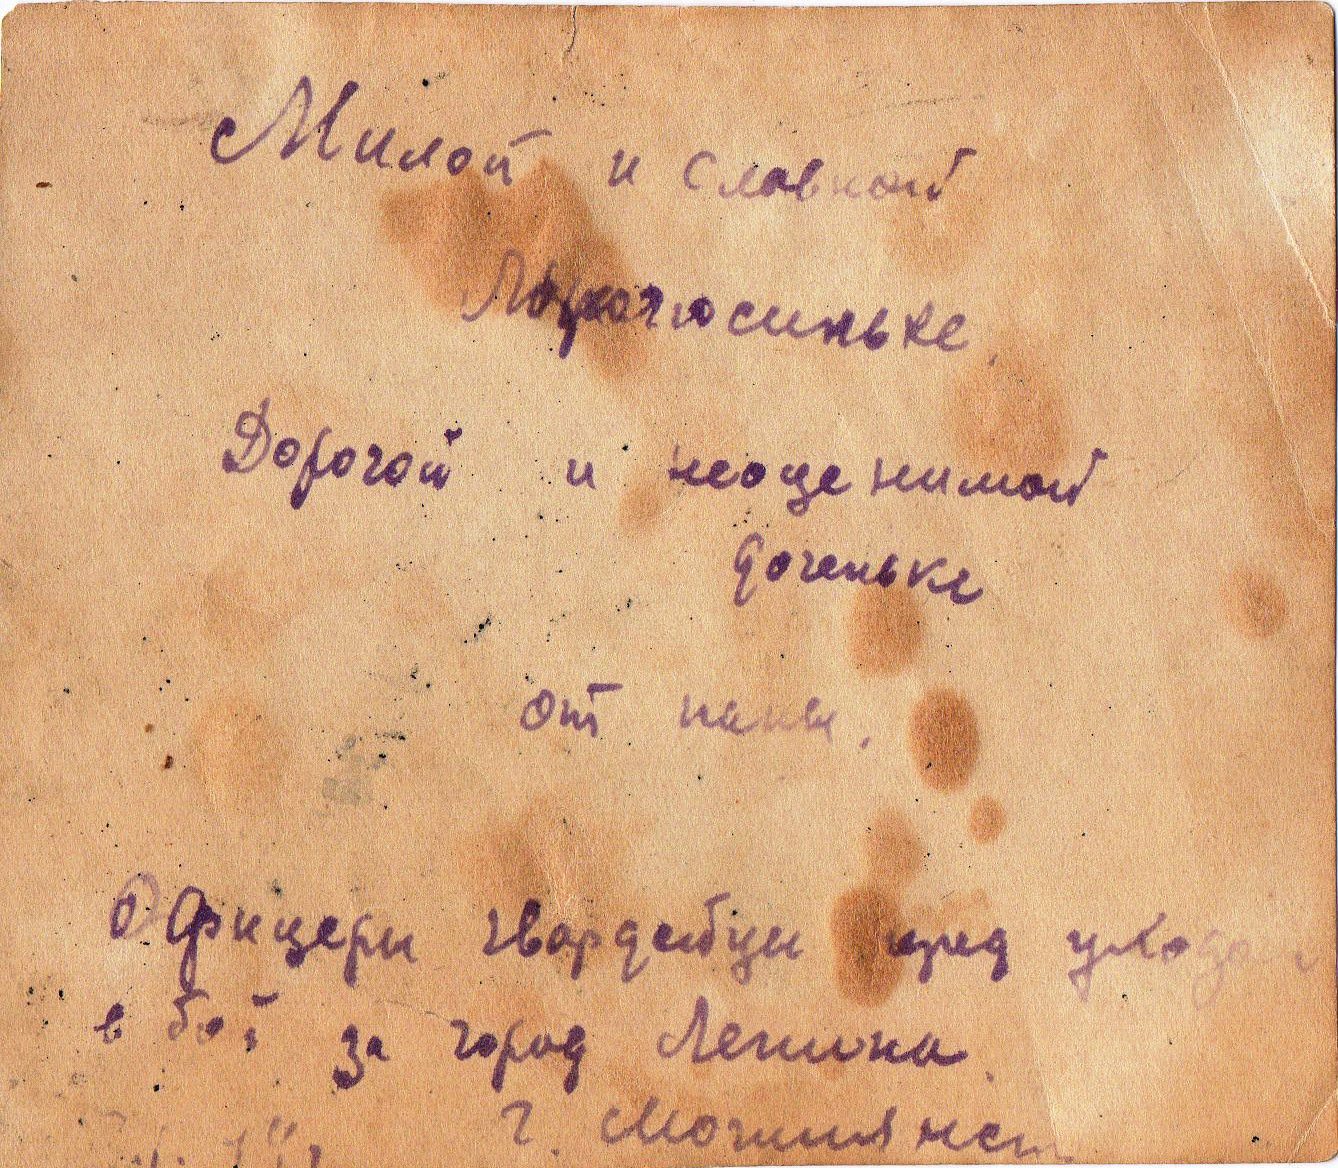 Милой и славной
Дорогой и неоценимой
доченьке
от папы.
Офицеры гвардейцы перед уходом
в бой за город Ленина.
г.